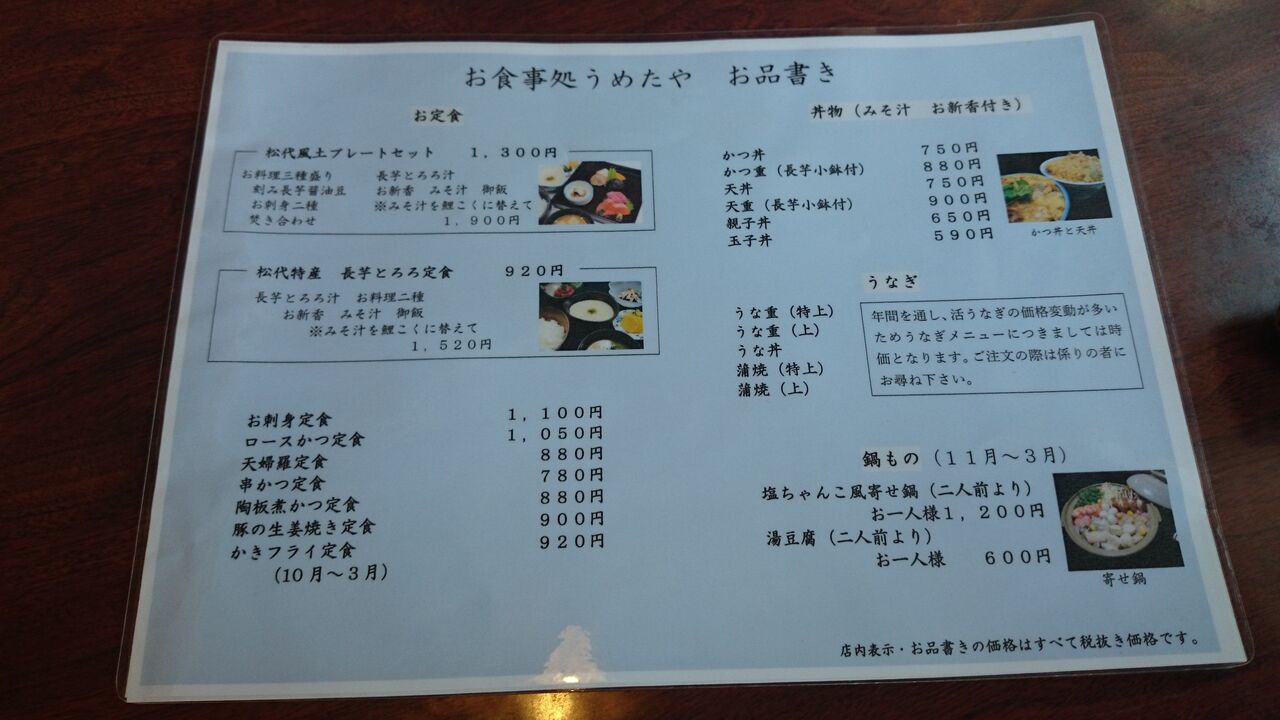 お食事処うめたや　お品書き
お定食
松代風土プレートセット　１，３００円
お料理三種盛り　長芋とろろ汁
刻み長芋醤油豆　お新香　みそ汁　御飯
お刺身二種　※みそ汁を鯉こくに替えて
焚き合わせ　１，９００円
松代特産　長芋とろろ定食　９２０円
長芋とろろ汁　お料理二種
お新香　みそ汁　御飯
※みそ汁を鯉こくに替えて
１，５２０円
お刺身定食　１，１００円
ロースかつ定食　１，０５０円
天婦羅定食　８８０円
串かつ定食　７８０円
陶板煮かつ定食　８８０円
豚の生姜焼き定食　９００円
かきフライ定食　９２０円
（10月～３月）
丼物（みそ汁　お新香付き）
かつ丼　７５０円
かつ重（長芋小鉢付）　８８０円
天丼　７５０円
天重（長芋小鉢付）　９００円
親子丼　６５０円
玉子丼　５９０円
かつ丼と天丼
うなぎ
うな重（特上）
うな重（上）
うな丼
蒲焼（特上）
蒲焼（上）
年間を通し、活うなぎの価格変動が多い
ためうなぎメニューにつきましては時
価となります。ご注文の際は係りの者に
お尋ね下さい。
鍋もの（１１月～３月）
塩ちゃんこ風寄せ鍋（二人前より）
お一人様１，２００円
湯豆腐（二人前より）
お一人様　６００円
寄せ鍋
店内表示・お品書きの価格はすべて税抜き価格です。